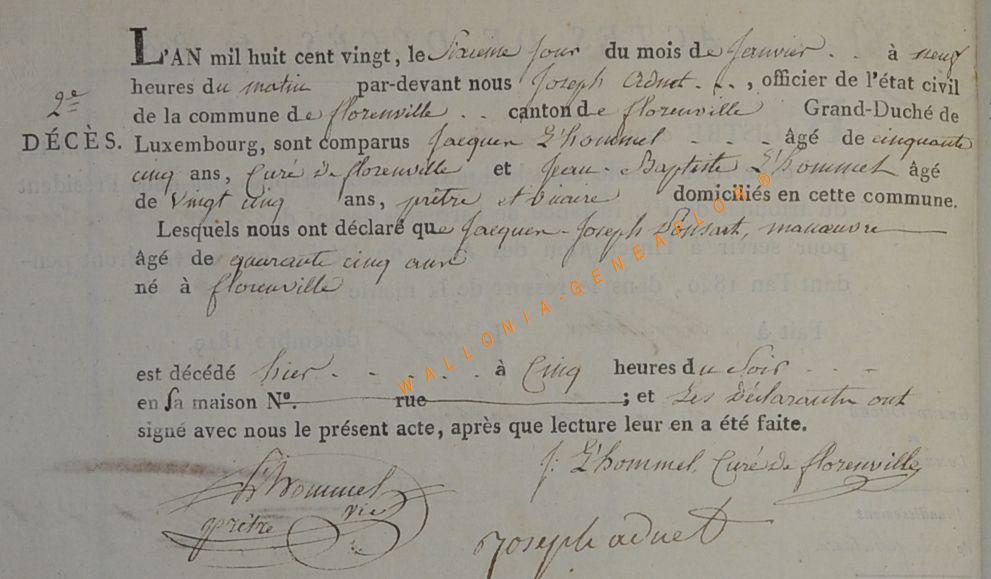 L'AN mil huit cent vingt, le Sixieme Jour du mois de Janvier . . à neuf
heures du matin par-devant nous Joseph Adnet . . ., officier de l'état civil
2e
de la commune de florenville . . canton de florenville Grand-Duché de
DÉCÈS. Luxembourg, sont comparus Jacques L'hommel - - - âgé de cinquante
cinq ans, Curé de florenville et Jean-Baptiste L'hommel âgé
de Vingt cinq ans, prêtre et vicaire domiciliés en cette commune.
Lesquels nous ont déclaré que Jacques-Joseph Ponsart, manœuvre
âgé de quarante cinq ans
né à florenville
est décédé hier - - - - - à Cinq heures du Soir - - -
en sa maison N°. rue ; et Les Déclarants ont
signé avec nous le présent acte, après que lecture leur en a été faite.
L'hommel
prêtre vic
J: L'hommel, Curé de florenville
Joseph adnet
WALLONIA-GENEARLON®